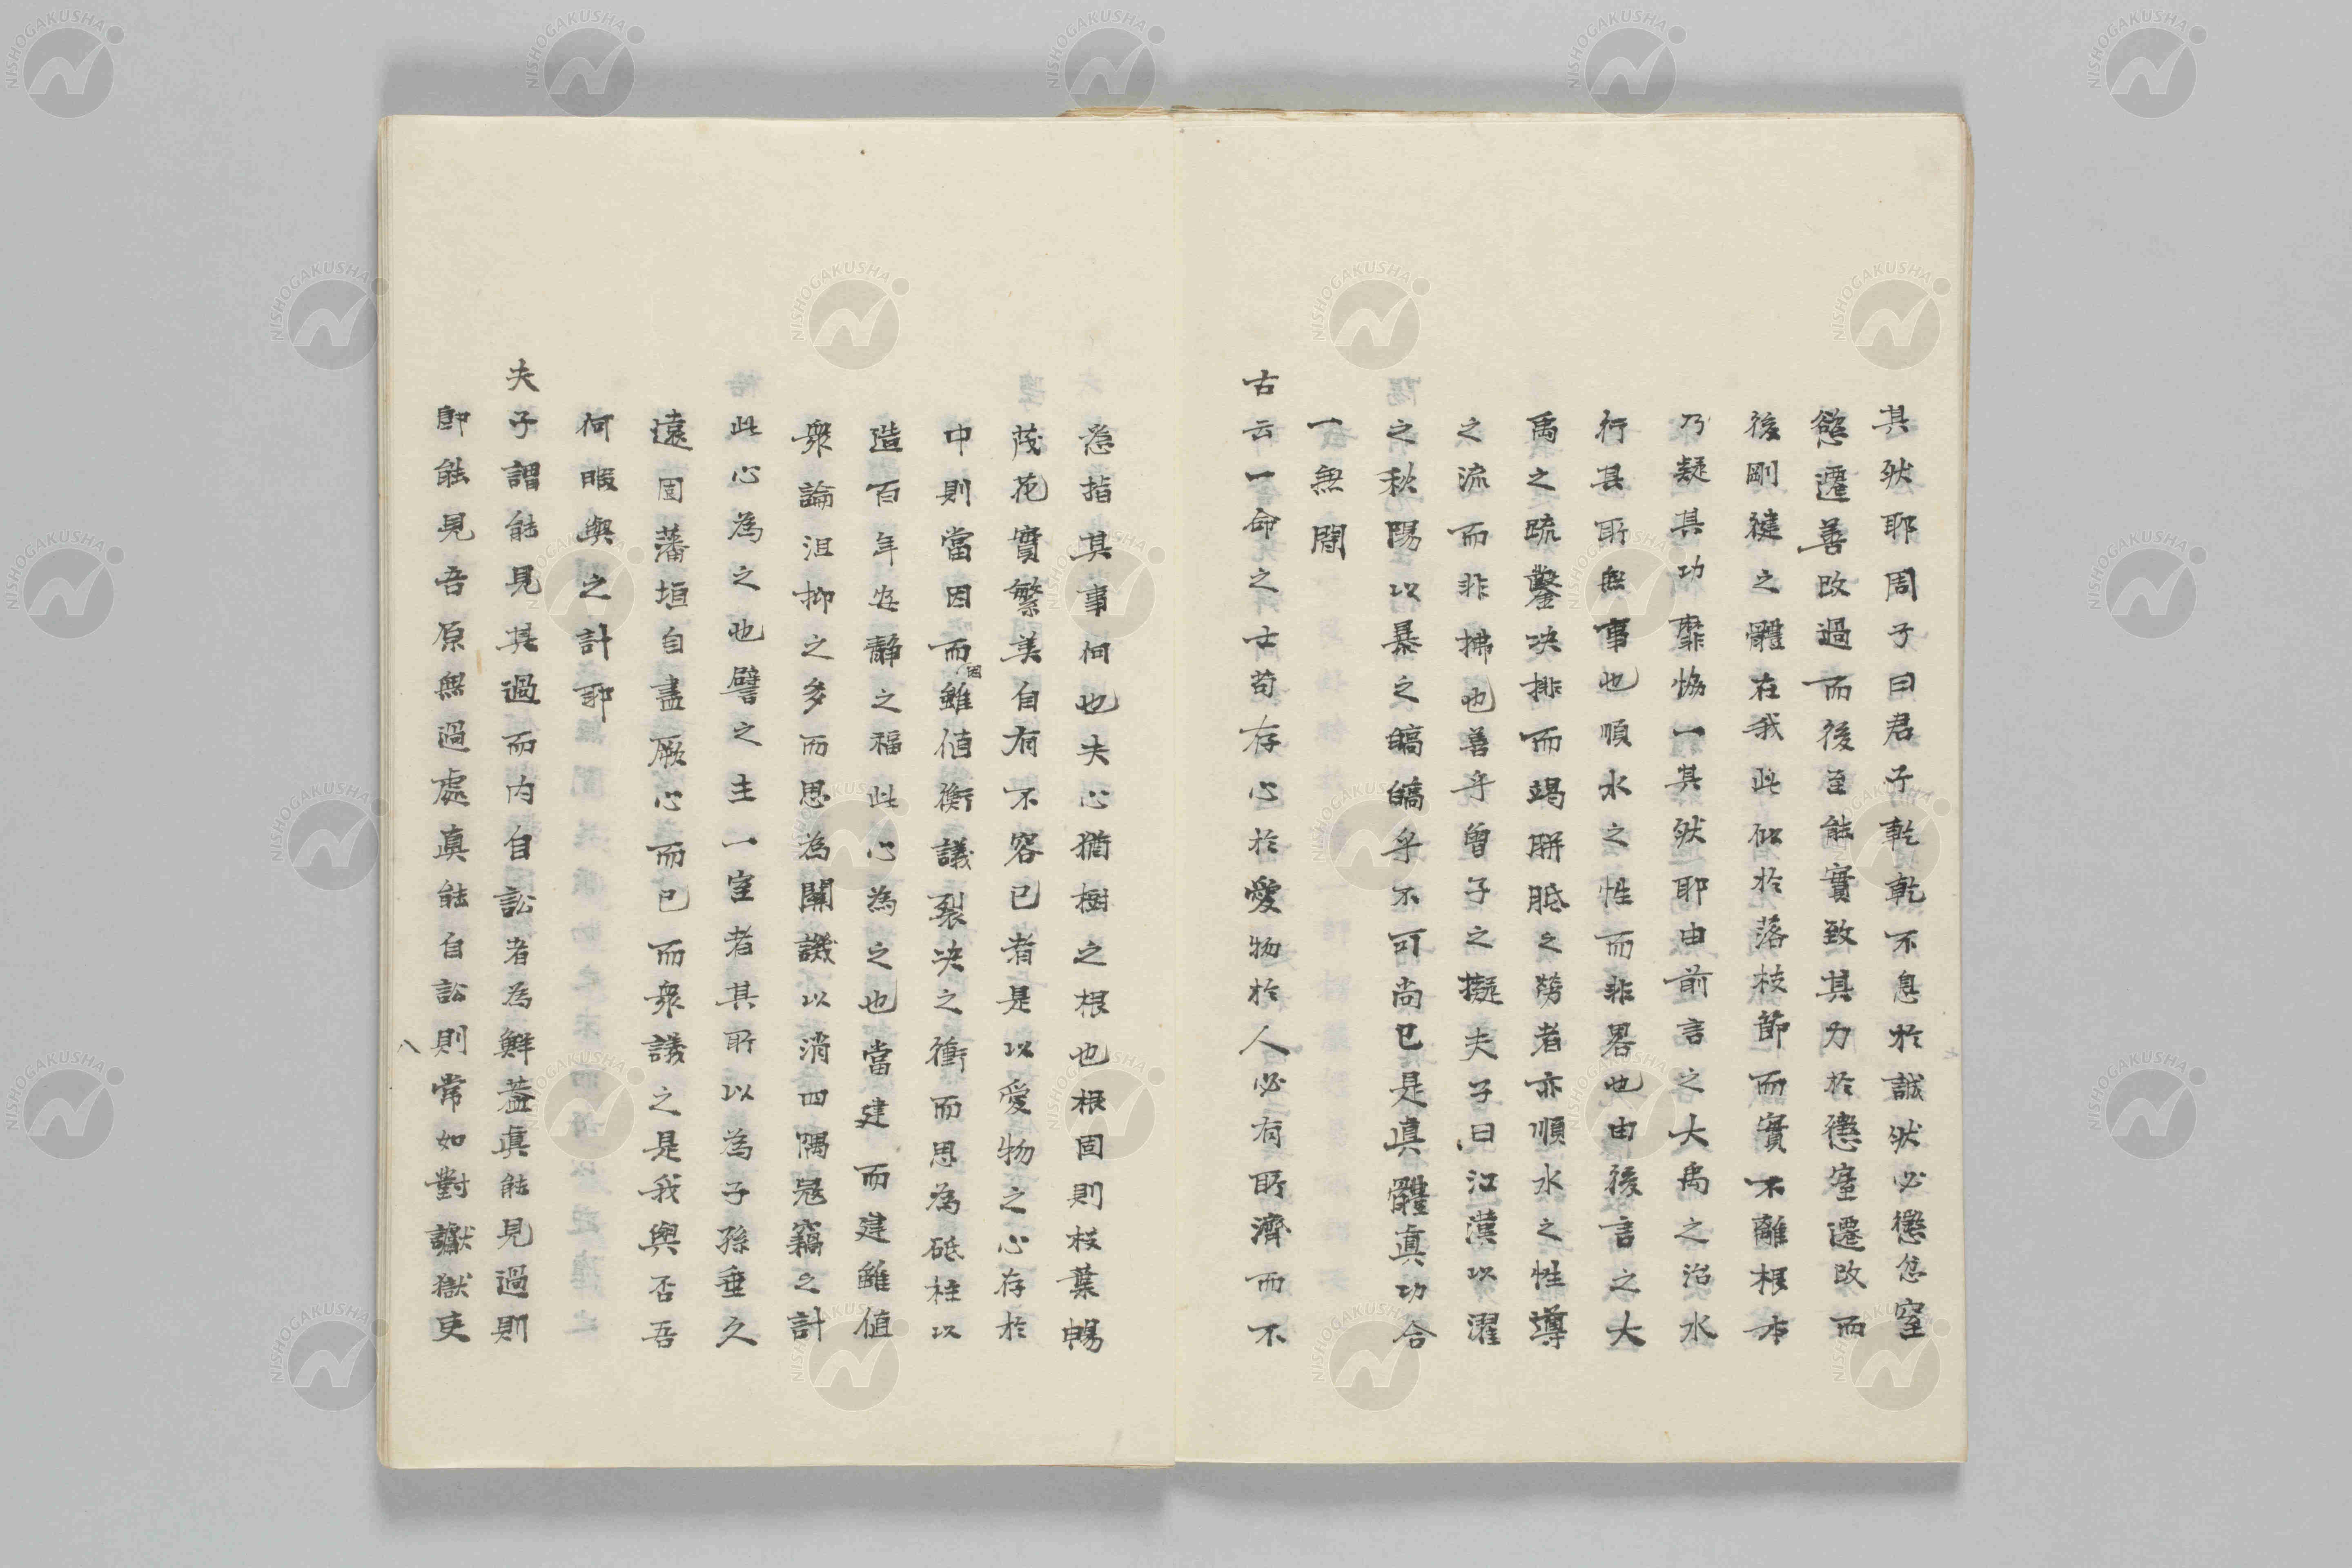 其然耶周子曰君子乾乾不息於誠然必懲忿窒
慾遷善改過而後至能實致其力於懲窒遷改而
後剛健之體在我此似於落枝節而實不離根本
乃疑其功靡恊一其然耶由前言之大禹之治水
行其所無事也順水之性而非畧也由後言之大
禹之疏鑿决排而竭胼胝之勞者亦順水之性導
之流而非拂也善乎曾子之擬夫子曰江漢以濯
之秋陽以暴之皜皜乎不可尚已是真體真功合
一無間
古云一命之士苟存心於愛物於人必有所濟而不
惹指其事何也夫心猶樹之根也根固則枝葉暢
茂花實繁美自有不容已者是以愛物之心存於
中則當因而因雖值衡議裂决之衝而思為砥柱以
造百年安靜之福此心為之也當建而建雖值
衆論沮抑之多而思為關譏以消四隅冦竊之計
此心為之也譬之主一室者其所以為子孫垂久
遠固藩垣自盡厥心而已而衆議之是我與否吾
何暇與之計耶
夫子謂能見其過而內自訟者為鮮蓋真能見過則
即能見吾原無過處真能自訟則常如對讞獄吏
八
NISHOGAKUSHA